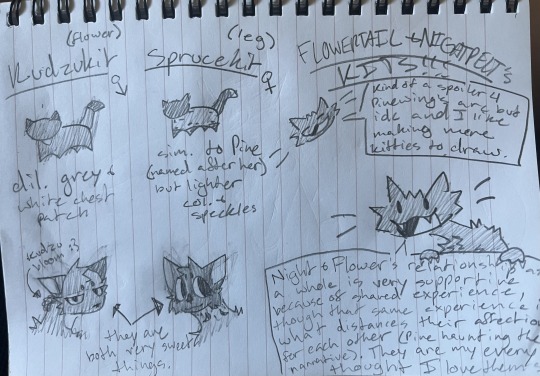 (flower)
Kudzukit
♀
dil. grey +
white chest
patch
kudzu
bloom :3
(leg)
Sprucekit
♀
sim. to Pine
(named after her)
but lighter
col. +
speckles
they are
both very sweet
things.
FLOWERTAIL + NIGHTPELT's
KITS!!
Kind of a spoiler 4
Pinewing's arc but
idc and I like
making more
kitties to draw.
Night + Flower's relationship as
a whole is very supportive
because of shared experience,
though that same experience
what distances their affection
for each other (Pine haunting the
narrative). They are my every
thought I love them